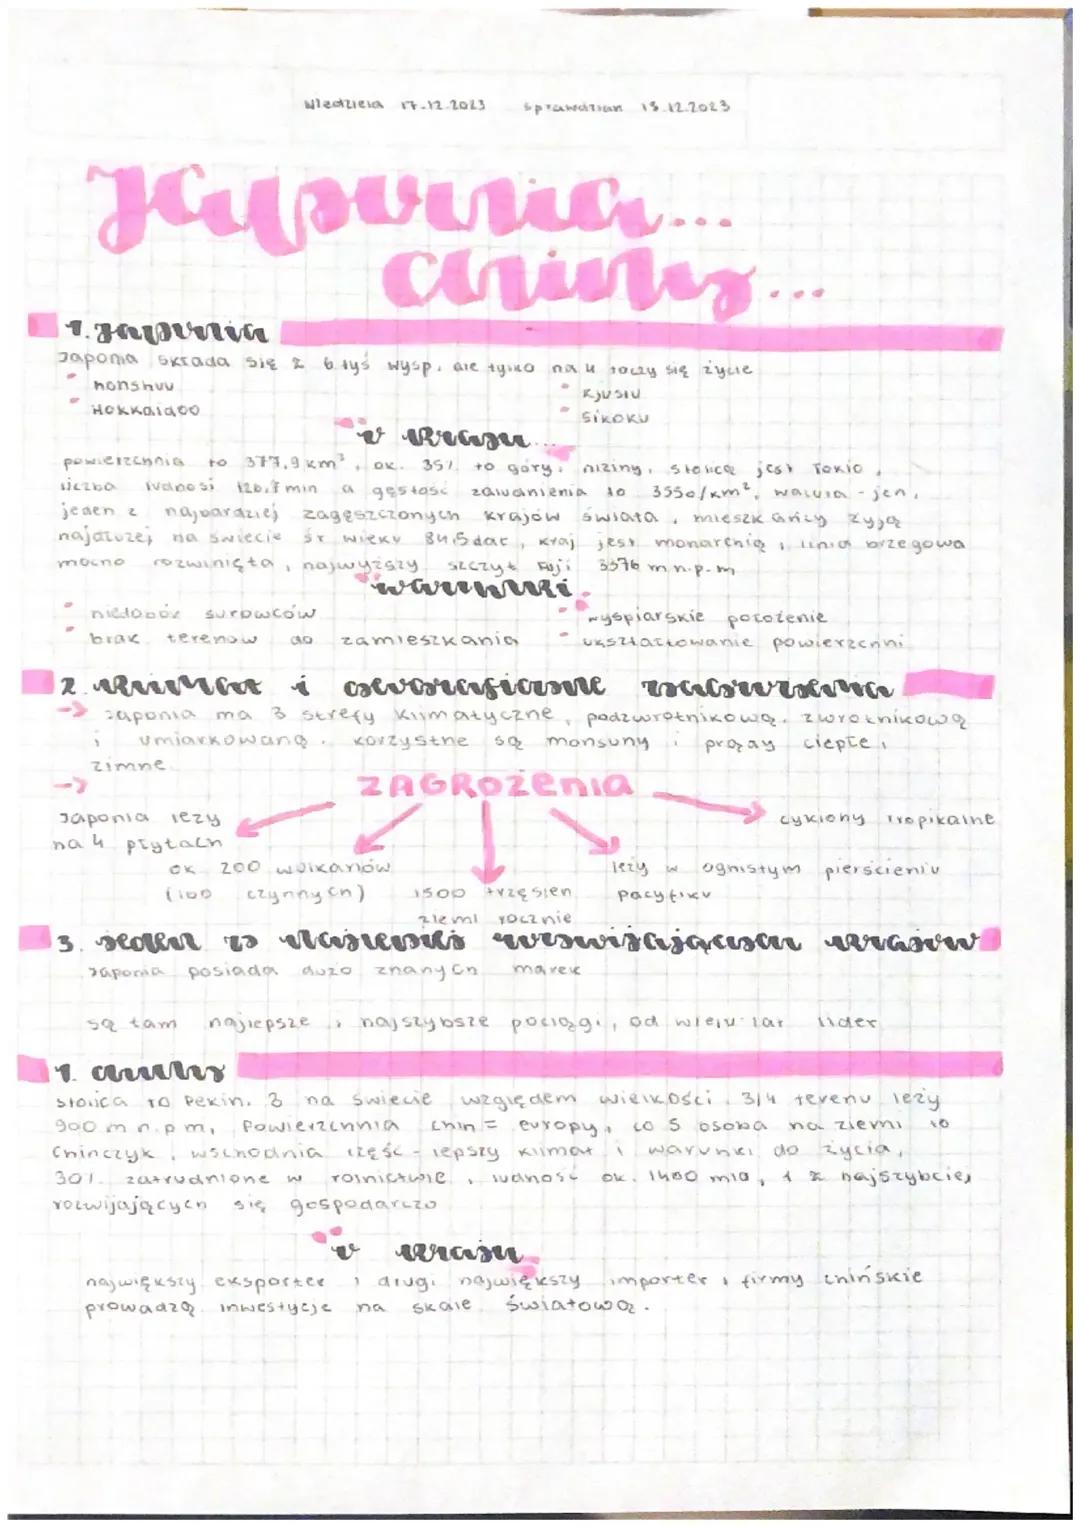 Niedziela 17.12.2023 sprawdzian 18.12.2023
Japonia...
Chiny...
1. Japonia
Japonia składa się z 6 tyś wysp, ale tylko na 4 toczy się życie
• honshuu
• Hokkaidoo
• Kjusiu
• sikoku
o kraju...
powierzchnia to 377,9 km², ok. 35% to góry, niziny, stolicą jest Tokio,
liczba ludnosi 126,7 mln a gęstość zaludnienia to 3550/km², waluta - jen,
jeden z najbardziej zagęszczonych krajów świata, mieszkańcy żyją
najdłużej na świecie śr wieku 84,5 dat, kraj jest monarchią, linia brzegowa
mocno rozwinięta, najwyższy szczyt Fuji 3376 m n.p.m
warunki
• niedobór surowców
• brak terenów do zamieszkania
• wyspiarskie położenie
• ukształtowanie powierzchni
2. klimat i geograficzne zagrożenia
-> Japonia ma 3 strefy klimatyczne, podzwrotnikową, zwrotnikową
i umiarkowaną. korzystne są monsuny i prądy ciepłe i
zimne
->
ZAGROżenia
Japonia leży
na 4 płytach
ok 200 wulkanów
(100 czynnych)
1500 trzęsień
ziemi rocznie
leży w ognistym pierścieniu
pacyfiku
cyklony tropikalne
3. Jeden z najlepiej rozwijających krajów
Japonia posiada dużo znanych marek
są tam najlepsze i najszybsze pociągi, od wielu lat lider
1. Chiny
stolica to Pekin. 3 na świecie względem wielkości. 3/4 terenu leży
900 m n.p.m, Powierzchnia Chin = europy, co 5 osoba na ziemi to
Chińczyk, wschodnia część - lepszy klimat i warunki do życia,
30% zatrudnione w rolnictwie, ludność ok. 1400 mld, 1 z najszybciej
rozwijających się gospodarczo
o kraju
największy eksporter i drugi największy importer, firmy chińskie
prowadzą inwestycje na skale światową.